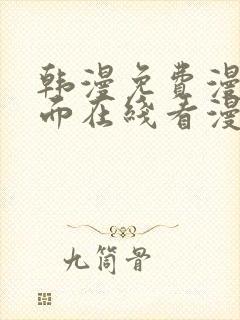 韩漫免费漫
而在线看漫
九筒骨